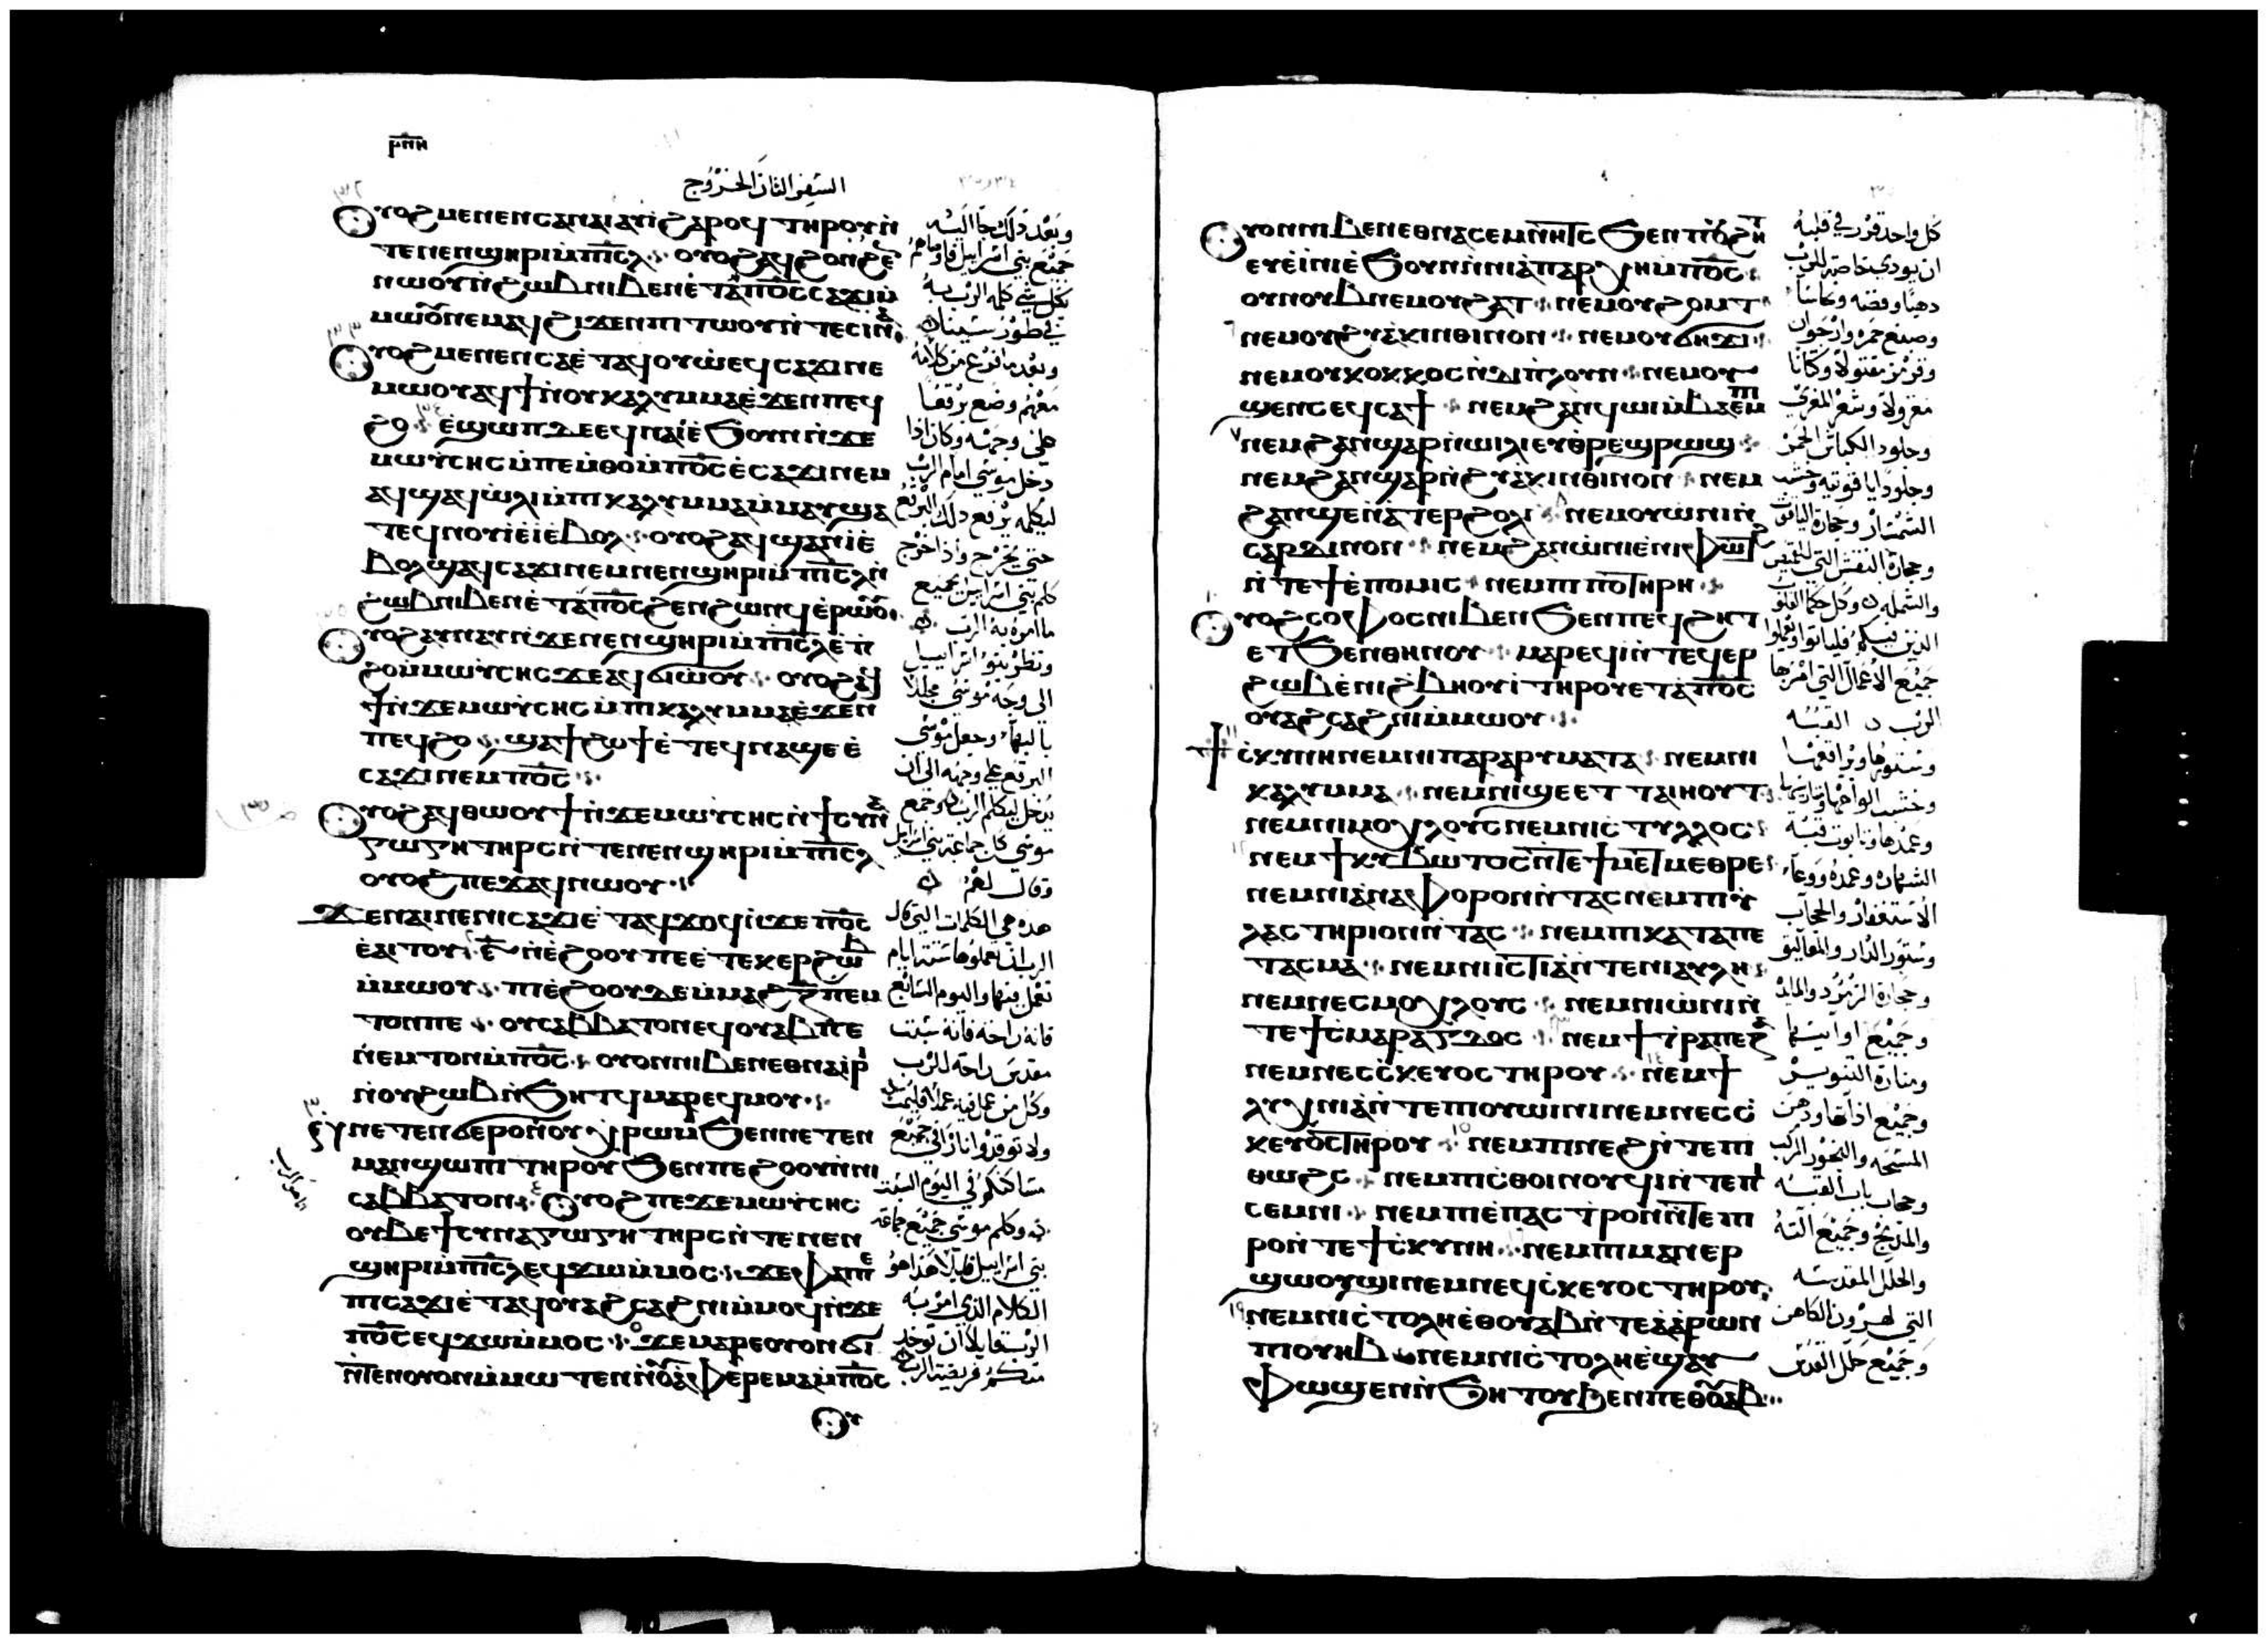 ⲣⲡⲏ
السفر الثاني الخروج
ⲟⲩⲟϩ ⲙⲉⲛⲉⲛⲥⲁ ⲛⲁⲓ ⲁⲩⲓ̀ ϩⲁⲣⲟϥ ⲧⲏⲣⲟⲩ ⲛ̀
ⲧⲉ ⲛⲉⲛϣⲏⲣⲓ ⲙ̀ⲡⲓ̅ⲥ̅ⲗ̅ ⲟⲩⲟϩ ⲁϥϩⲟⲛϩⲉⲛ
ⲛⲱⲟⲩ ⲛ̀ϩⲱⲃ ⲛⲓⲃⲉⲛ ⲉ̀ⲧⲁ ⲡⲟ̅ⲥ̅ ⲥⲁϫⲓ ⲙ̀
ⲙⲱⲟⲩ ⲛⲉⲙⲁϥ ϩⲓϫⲉⲛ ⲡⲓⲧⲱⲟⲩ ⲛ̀ⲧⲉ ⲥⲓⲛⲁ
ⲟⲩⲟϩ ⲙⲉⲛⲉⲛⲥⲁ ⲉ̀ⲧⲁϥⲟⲩⲱ̀ ⲉϥⲥⲁϫⲓ ⲛⲉ
ⲙⲱⲟⲩ ⲁϥϯ ⲛ̀ⲟⲩⲕⲁⲗⲩⲙⲙⲁ ⲉ̀ϫⲉⲛ ⲡⲉϥ
ϩⲟ ⲉ̀ϣⲱⲡ ⲇⲉ ⲉϥⲛⲁⲓ̀ ⲉ̀ϧⲟⲩⲛ ⲛ̀ϫⲉ
ⲙⲱⲩ̀ⲥⲏⲥ ⲙ̀ⲡⲉⲙ̀ⲑⲟ ⲙ̀ⲡⲟ̅ⲥ̅ ⲉ̀ⲥⲁϫⲓ ⲛⲉⲙ
ⲁϥ ϣⲁϥⲱ̀ⲗⲓ ⲙ̀ⲡⲓⲕⲁⲗⲩⲙⲙⲁ ⲙ̀ⲙⲁⲩ ϣⲁ
ⲧⲉϥⲛⲟⲩⲓ̀ ⲉ̀ⲓ̀ ⲉ̀ⲃⲟⲗ ⲟⲩⲟϩ ⲁϥϣⲁⲛⲓ̀ ⲉ̀
ⲃⲟⲗ ϣⲁϥⲥⲁϫⲓ ⲛⲉⲙ ⲛⲉⲛϣⲏⲣⲓ ⲙ̀ⲡⲓ̅ⲥ̅ⲗ̅ ⲛ̀
ϩⲱⲃ ⲛⲓⲃⲉⲛ ⲉ̀ⲧⲁ ⲡⲟ̅ⲥ̅ ϩⲉⲛϩⲱⲛϥ ⲉ̀ⲣⲱⲟⲩ
ⲟⲩⲟϩ ⲁⲩⲛⲁⲩ ⲛ̀ϫⲉ ⲛⲉⲛϣⲏⲣⲓ ⲙ̀ⲡⲓ̅ⲥ̅ⲗ̅ ⲉ̀ⲡ
ϩⲟ ⲙ̀ⲙⲱⲩ̀ⲥⲏⲥ ϫⲉ ⲁϥϭⲓⲱ̀ⲟⲩ ⲟⲩⲟϩ ⲁϥ
ϯ ⲛ̀ϫⲉ ⲙⲱⲩ̀ⲥⲏⲥ ⲙ̀ⲡⲓⲕⲁⲗⲩⲙⲙⲁ ⲉ̀ϫⲉⲛ
ⲡⲉϥϩⲟ ϣⲁϯϩⲱϯ ⲉ̀ⲧⲉϥⲛⲁϣⲉ ⲉ̀
ⲥⲁϫⲓ ⲛⲉⲙ ⲡⲟ̅ⲥ̅
ⲟⲩⲟϩ ⲁϥⲑⲱⲟⲩϯ ⲛ̀ϫⲉ ⲙⲱⲩ̀ⲥⲏⲥ ⲛ̀ϯⲥⲩⲛⲁ
ⲅⲱⲅⲏ ⲧⲏⲣⲥ ⲛ̀ⲧⲉ ⲛⲉⲛϣⲏⲣⲓ ⲙ̀ⲡⲓ̅ⲥ̅ⲗ̅
ⲟⲩⲟϩ ⲡⲉϫⲁϥ ⲛⲱⲟⲩ
ϫⲉ ⲛⲁⲓ ⲛⲉ ⲛⲓⲥⲁϫⲓ ⲉ̀ⲧⲁϥϫⲟϥ ⲛ̀ϫⲉ ⲡⲟ̅ⲥ̅
ⲉ̀ⲁⲓⲧⲟⲩ ⲋ̅ ⲛ̀ⲉ̀ϩⲟⲟⲩ ⲡⲉ ⲉ̀ⲧⲉⲕⲉⲣϩⲱⲃ
ⲙ̀ⲙⲱⲟⲩ ⲡⲓⲉ̀ϩⲟⲟⲩ ⲇⲉ ⲙ̀ⲙⲁϩ ⲍ̅ ⲡ̀ⲉⲙ
ⲧⲟⲛ ⲡⲉ ⲟⲩⲥⲁⲃⲃⲁⲧⲟⲛ ⲉϥⲟⲩⲁⲃ ⲡⲉ
ⲛ̀ⲉⲙⲧⲟⲛ ⲙ̀ⲡⲟ̅ⲥ̅ ⲟⲩⲟⲛ ⲛⲓⲃⲉⲛ ⲉⲑⲛⲁⲓⲣⲓ
ⲛ̀ⲟⲩϩⲱⲃ ⲛ̀ϧⲏⲧϥ ⲙⲁⲣⲉϥⲙⲟⲩ
ⲛ̀ⲛⲉⲧⲉⲛϭⲉⲣⲟ ⲛ̀ⲟⲩⲭⲣⲱⲙ ϧⲉⲛ ⲛⲉⲧⲉⲛ
ⲙⲁⲛϣⲱⲡⲓ ⲧⲏⲣⲟⲩ ϧⲉⲛ ⲡⲉϩⲟⲟⲩ ⲛ̀ⲛⲓ
ⲥⲁⲃⲃⲁⲧⲟⲛ ⲟⲩⲟϩ ⲡⲉϫⲉ ⲙⲱⲩ̀ⲥⲏⲥ
ⲟⲩⲃⲉ ϯⲥⲩⲛⲁⲅⲱⲅⲏ ⲧⲏⲣⲥ ⲛ̀ⲧⲉ ⲛⲉⲛ
ϣⲏⲣⲓ ⲙ̀ⲡⲓ̅ⲥ̅ⲗ̅ ⲉϥϫⲱ ⲙ̀ⲙⲟⲥ ϫⲉ ⲫⲁⲓ ⲡⲉ
ⲡⲓⲥⲁϫⲓ ⲉ̀ⲧⲁϥⲟⲩⲁϩⲥⲁϩⲛⲓ ⲙ̀ⲙⲟϥ ⲛ̀ϫⲉ
ⲡⲟ̅ⲥ̅ ⲉϥϫⲱ ⲙ̀ⲙⲟⲥ ϫⲉ ⲙⲁⲣⲉ ⲟⲩⲟⲛ ϭⲓ
ⲛ̀ⲧⲉⲛ ⲟⲩⲟⲛ ⲙ̀ⲙⲱⲧⲉⲛ ⲛ̀ⲟⲩⲁ̀ⲫⲉⲣⲉⲙⲁ ⲙ̀ⲡⲟ̅ⲥ̅
ⲟⲩ
وبعد ذلك جا اليه
جميع بني اسراييل فاوصاهم
بكل شي كلمه الرب به
في طور سينا
وبعد ما فرغ من كلامه
معهم وضع برقعا
على وجهه وكان اذا
دخل موسى امام الرب
ليكلمه يرفع ذلك البرقع
حتى يخرج واذا خرج
كلم بني اسراييل بجميع
ما امره به الرب
ونظر بنوا اسراييل
الى وجه موسى مجللا
بالبها وجعل موسى
البرقع على وجهه الى ان
يدخل ليكلم الرب وجمع
موسى كل جماعة بني اسراييل
وقال لهم
هذه هي الكلمات التي قال
الرب ان تعملوها ستة ايام
تعمل فيها واليوم السابع
فانه راحة فانه سبت
مقدس راحة للرب
وكل من عمل فيه عملا فليمت
ولا توقدوا نارا في جميع
مساكنكم في اليوم السبت
وكلم موسى جميع جماعة
بني اسراييل قايلا هذا هو
الكلام الذي امر به
الرب قايلا ان توخذ
منكم فريضة الرب
ⲟⲩⲟⲛ ⲛⲓⲃⲉⲛ ⲉⲑⲛⲁⲥⲉⲙⲛⲏⲧⲥ ϧⲉⲛ ⲡⲟⲩϩⲏⲧ
ⲉⲩⲉ̀ⲓ̀ⲛⲓ ⲉ̀ϧⲟⲩⲛ ⲛ̀ⲛⲓⲁ̀ⲡⲁⲣⲭⲏ ⲙ̀ⲡⲟ̅ⲥ̅
ⲟⲩⲛⲟⲩⲃ ⲛⲉⲙ ⲟⲩϩⲁⲧ ⲛⲉⲙ ⲟⲩϩⲟⲙⲧ
ⲛⲉⲙ ⲟⲩϩⲩⲁ̀ⲕⲓⲛⲑⲓⲛⲟⲛ ⲛⲉⲙ ⲟⲩϭⲏϫⲓ
ⲛⲉⲙ ⲟⲩⲕⲟⲕⲕⲟⲥ ⲛ̀ⲇⲓⲡⲗⲟⲩⲛ ⲛⲉⲙ ⲟⲩ
ϣⲉⲛⲥ ⲉϥⲥⲁϯ ⲛⲉⲙ ϩⲁⲛϥⲱⲓ ⲙ̀ⲃⲁⲉⲙⲡⲓ
ⲛⲉⲙ ϩⲁⲛϣⲁⲣ ⲛ̀ⲱⲓⲗⲓ ⲉⲩⲑⲣⲉϣⲣⲱϣ
ⲛⲉⲙ ϩⲁⲛϣⲁⲣ ⲛ̀ϩⲩⲁ̀ⲕⲓⲛⲑⲓⲛⲟⲛ ⲛⲉⲙ
ϩⲁⲛϣⲉ ⲛ̀ⲁⲧⲉⲣϩⲟⲗⲓ ⲛⲉⲙ ⲟⲩⲱⲛⲓ ⲛ̀
ⲥⲁⲣⲇⲓⲛⲟⲛ ⲛⲉⲙ ϩⲁⲛⲱ̀ⲛⲓ ⲉ̀ⲛⲓⲫⲱⲧϩ
ⲛ̀ⲧⲉ ϯⲉ̀ⲡⲟⲙⲓⲥ ⲛⲉⲙ ⲡⲓⲡⲟⲧⲏⲣⲏ
ⲟⲩⲟϩ ⲥⲟⲫⲟⲥ ⲛⲓⲃⲉⲛ ϧⲉⲛ ⲡⲉϥϩⲏⲧ
ⲉⲧϧⲉⲛ ⲑⲏⲛⲟⲩ ⲙⲁⲣⲉϥⲓ̀ ⲛ̀ⲧⲉϥⲉⲣ
ϩⲱⲃ ⲉ̀ⲛⲓϩⲃⲏⲟⲩⲓ̀ ⲧⲏⲣⲟⲩ ⲉⲧⲁ̀ ⲡⲟ̅ⲥ̅
ⲟⲩⲁϩⲥⲁϩⲛⲓ ⲙ̀ⲙⲱⲟⲩ
ϯⲥ̀ⲕⲩⲛⲏ ⲛⲉⲙ ⲛⲓⲡⲁⲣⲁⲣⲩⲙⲁⲧⲁ ⲛⲉⲙ ⲛⲓ
ⲕⲁⲗⲩⲙⲙⲁ ⲛⲉⲙ ⲛⲓϣⲉ ⲉⲧⲧⲁⲓⲏⲟⲩⲧ
ⲛⲉⲙ ⲛⲓⲙⲟⲭⲗⲟⲩⲥ ⲛⲉⲙ ⲛⲓⲥ̀ⲧⲩⲗⲗⲟⲥ
ⲛⲉⲙ ϯⲕⲩⲃⲱⲧⲟⲥ ⲛ̀ⲧⲉ ϯⲙⲉⲧⲙⲉⲑⲣⲉ
ⲛⲉⲙ ⲛⲓⲁ̀ⲛⲁⲫⲟⲣⲟⲛ ⲛ̀ⲧⲁⲥ ⲛⲉⲙ ⲡⲓⲩ̀
ⲗⲁⲥⲧⲏⲣⲓⲟⲛ ⲛ̀ⲧⲁⲥ ⲛⲉⲙ ⲡⲓⲕⲁⲧⲁⲡⲉ
ⲧⲁⲥⲙⲁ ⲛⲉⲙ ⲛⲓⲓ̀ⲥⲧⲓⲁ̀ ⲛ̀ⲧⲉ ⲛⲓⲁⲩⲗⲏ
ⲛⲉⲙ ⲛⲉⲥⲙⲟⲭⲗⲟⲩⲥ ⲛⲉⲙ ⲛⲓⲱ̀ⲛⲓ ⲛ̀
ⲧⲉ ϯⲥ̀ⲙⲁⲣⲁⲅⲇⲟⲥ ⲛⲉⲙ ϯⲧ̀ⲣⲁⲡⲉⲍⲁ
ⲛⲉⲙ ⲛⲉⲥⲥ̀ⲕⲉⲩⲟⲥ ⲧⲏⲣⲟⲩ ⲛⲉⲙ ϯ
ⲗⲩⲭⲛⲓⲁ̀ ⲛ̀ⲧⲉ ⲡⲓⲟⲩⲱⲓⲛⲓ ⲛⲉⲙ ⲛⲉⲥⲥ̀
ⲕⲉⲩⲟⲥ ⲧⲏⲣⲟⲩ ⲛⲉⲙ ⲡⲓⲛⲉϩ ⲛ̀ⲧⲉ ⲡⲓ
ⲑⲱϩⲥ ⲛⲉⲙ ⲡⲓⲥ̀ⲑⲟⲓⲛⲟⲩϥⲓ ⲛ̀ⲧⲉ ⲡⲓ
ⲥⲉⲙⲛⲓ ⲛⲉⲙ ⲡⲓⲉ̀ⲡⲁⲥⲧ̀ⲣⲟⲛ ⲛ̀ⲧⲉ ⲡⲓ
ⲣⲟ ⲛ̀ⲧⲉ ϯⲥ̀ⲕⲩⲛⲏ ⲛⲉⲙ ⲡⲓⲙⲁⲛⲉⲣ
ϣⲱⲟⲩϣⲓ ⲛⲉⲙ ⲛⲉϥⲥ̀ⲕⲉⲩⲟⲥ ⲧⲏⲣⲟⲩ
ⲛⲉⲙ ⲛⲓⲥ̀ⲧⲟⲗⲏ ⲉ̀ⲑⲟⲩⲁⲃ ⲛ̀ⲧⲉ ⲁ̀ⲁ̀ⲣⲱⲛ
ⲡⲓⲟⲩⲏⲃ ⲛⲉⲙ ⲛⲓⲥ̀ⲧⲟⲗⲏ ⲉ̀ϣⲁⲩ
ⲫⲱϣⲉⲛ ⲛ̀ϧⲏⲧⲟⲩ ϧⲉⲛ ⲡⲉⲑⲟⲩⲁⲃ
كل واحد قرر في قلبه
ان يودي خاصة للرب
ذهبا وفضة ونحاسا
وصنع خمره وارجوان
وقرمز مفتوله وكتانا
مغزولا وشعر المعزي
وجلود الكباش الحمر
وجلودا ياقوتيه وخشب
الشمشار وحجارة الياقوت
وحجارة النقش التي للقميص
والشمله وكل حكما القلوب
الذين فيكم فلياتوا ويعملوا
جميع الاعمال التي امر بها
الرب القبه
وستورها وبراقعها
وخشب الواحها
وعمدها وتابوت قبة
الشهاده وعمده ووعا
الاستغفار والحجاب
وستور الدار والمعاليق
وحجارة الزمرد والمايده
وجميع اوانيها
ومنارة التنوير
وجميع اداتها ودهن
المسحه والبخور المركب
وحجاب باب القبه
والمذبح وجميع الته
والحلل المقدسه
التي لهرون الكاهن
وجميع حلل القدس